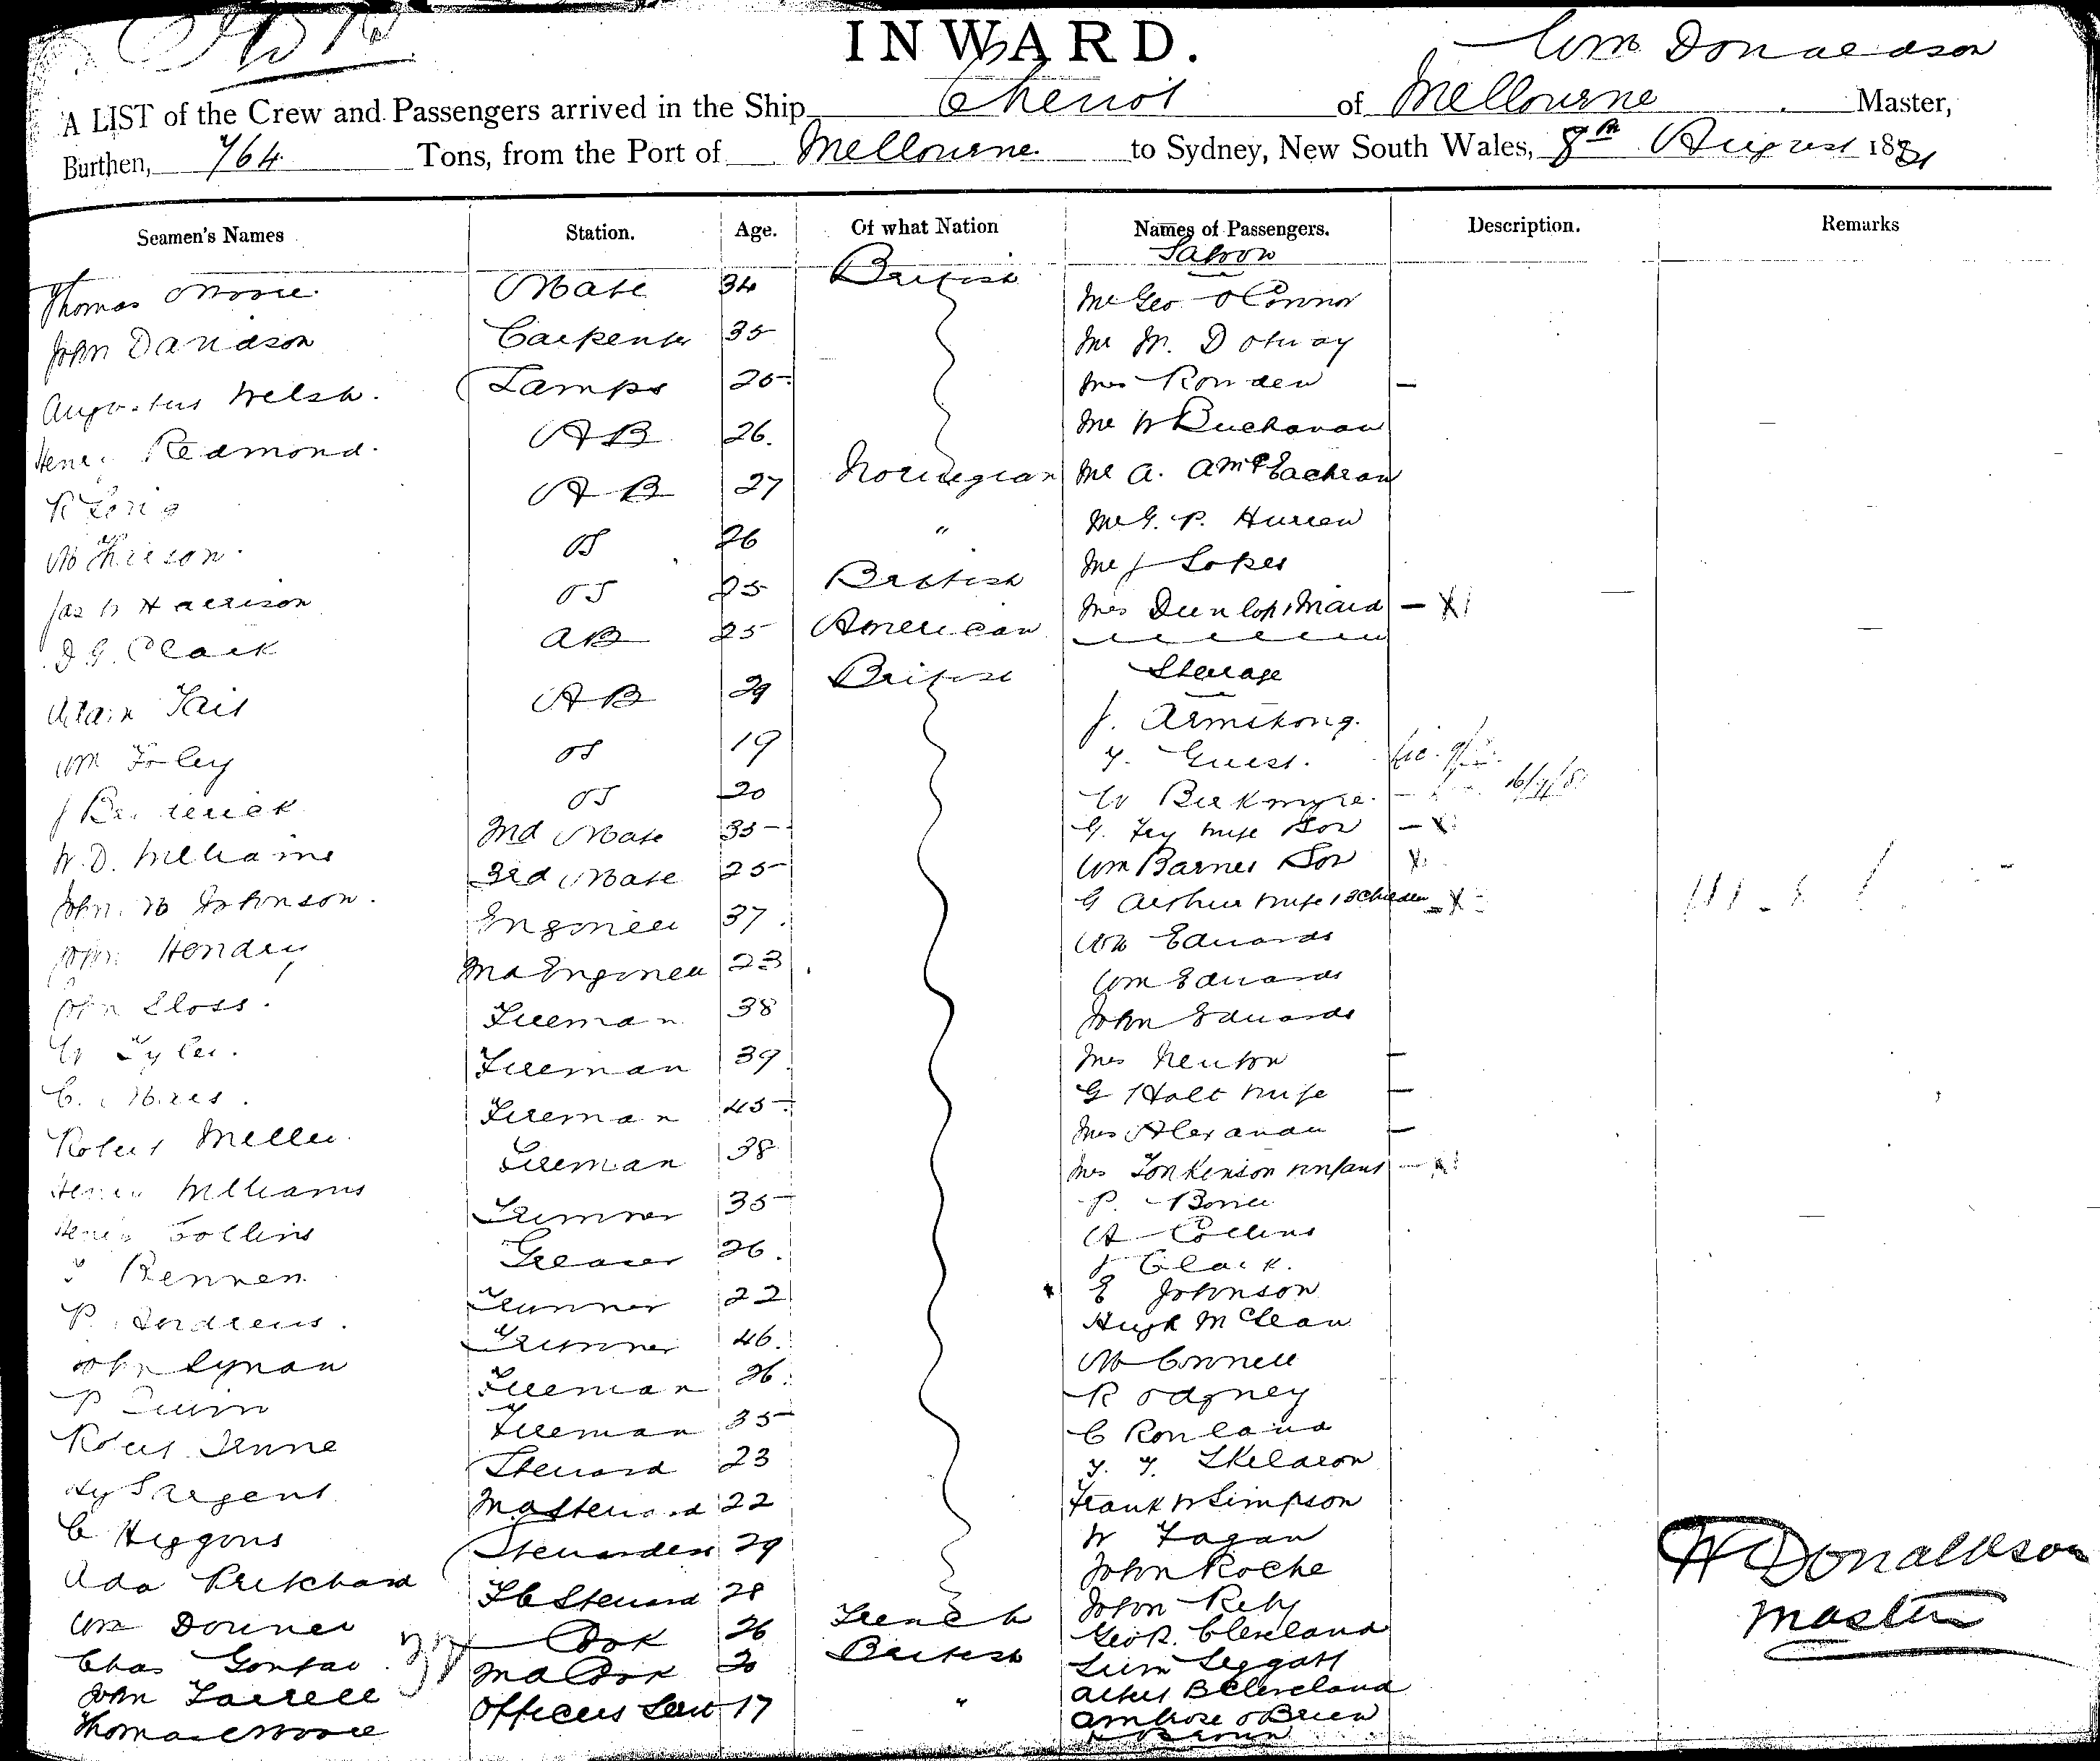 INWARD.
Wm Donaldson
A LIST of the Crew and Passengers arrived in the Ship Cheviot of Melbourne Master,
Burthen, 764 Tons, from the Port of Melbourne to Sydney, New South Wales, 8th August 1881
Seamen's Names Station. Age. Of what Nation Names of Passengers. Description. Remarks
Saloon
Thomas Moore Mate 34 British Mr Geo O'Connor
John Davidson Carpenter 35 Mr M. Dotway
Augustus Welsh Lamps 25 Mrs Rowden
Henry Redmond AB 26 Mr W Buchanan
AB 27 Norwegian Mr A. McEachran
OS 26 " Mr G. P. Hurren
Jas W Harrison OS 25 British Mr J Lopes
J. G. Clark AB 25 American Mrs Dunlop & Maid
Steerage
Adam Tait AB 29 British J. Armstrong
Wm Foley OS 19 T. Guest
J Broderick OS 20 W Birkmyre
W. D. Williams 2nd Mate 35 G. Fey wife Son
John W Johnson 3rd Mate 25 Wm Barnes Son
John Hendry Engineer 37 G Arthur wife & 3 Children
John Sloss 2nd Engineer 23 Wm Edwards
W Tyler Fireman 38 Wm Edwards
C. Fireman 39 John Edwards
Robert Miller Fireman 45 Mrs Newton
Henry Williams Fireman 38 G Holt wife
Henry Collins Trimmer 35 Mrs Alexander
Rennen Greaser 26 Mrs Tonkinson & infant
P. Andrews Trimmer 22 P.
John Lynan Trimmer 46 A Collins
P Quinn Fireman 26 J Clark
Robert Fireman 35 E Johnson
Hy Sargent Steward 23 Hugh McLean
C Higgons 22 W Connell
Ada Prichard Stewardess 29 R Odgney
Wm Downer F C Steward 28 C Rowland
Chas Cook 26 French T. T. Skeldron
John Farrell 2nd Cook 20 British Frank W Simpson
Thomas Moore Officers Servt 17 " W Fagan
John Roche
John Reby
Geo R. Cleveland
Leggatt
Albert B Cleveland
Ambrose O'Brien
Brown
37
W Donaldson
Master